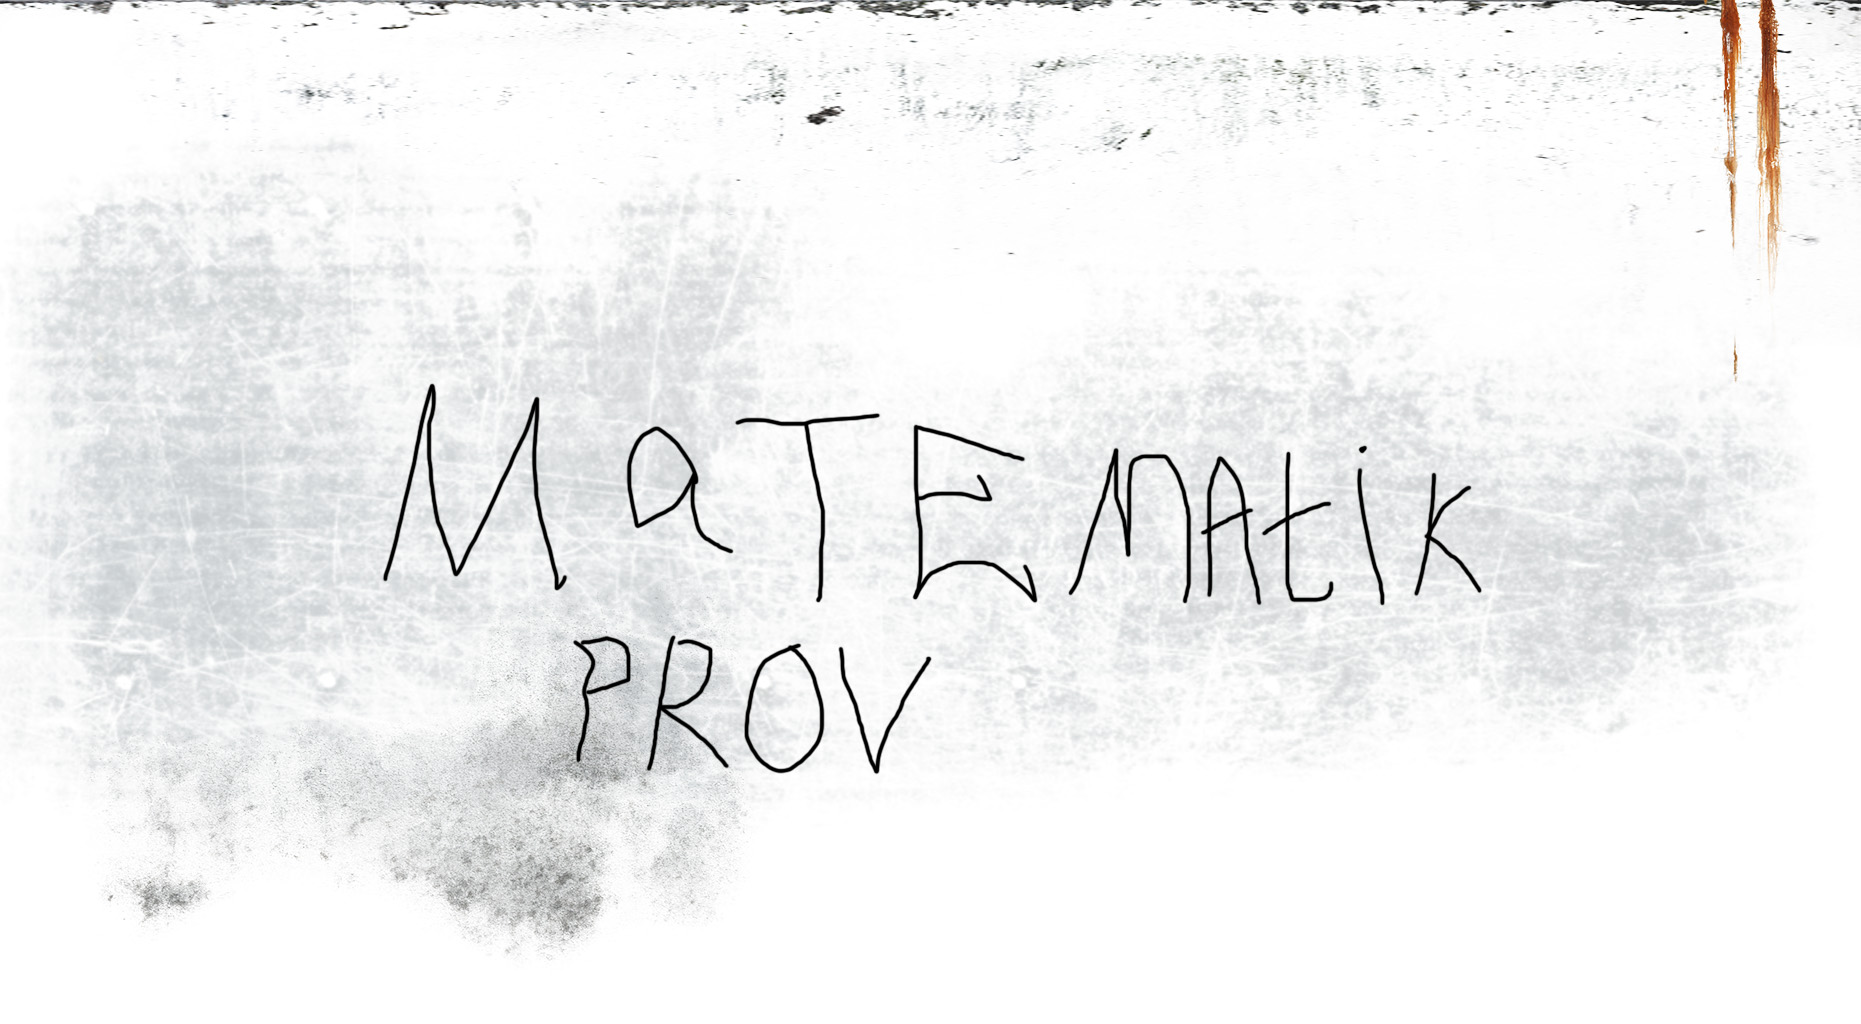 MaTEMAtik
PROV